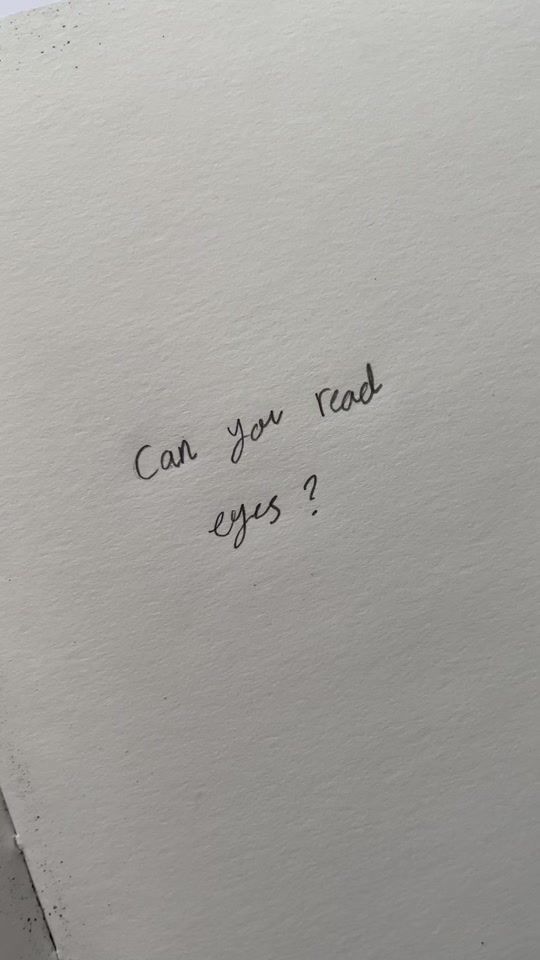 Can you read
eyes ?